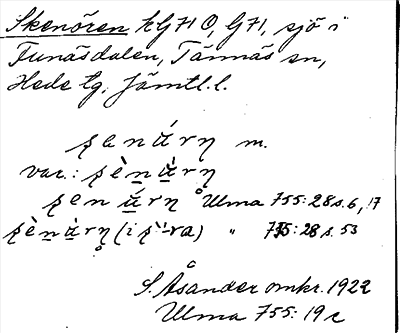 Skenören kG71 O, G71, sjö i
Funäsdalen, Tännäs sn,
Hede tg, Jämtl. l.
ʂenúrn m.
var.: ʂènùrn
ʂenúrn Ulma 755:28 s. 6, 17
ʂènùrn (i ʂ ra) " 755:28 s. 53
S. Åsander omkr. 1922
Ulma 755:19 c